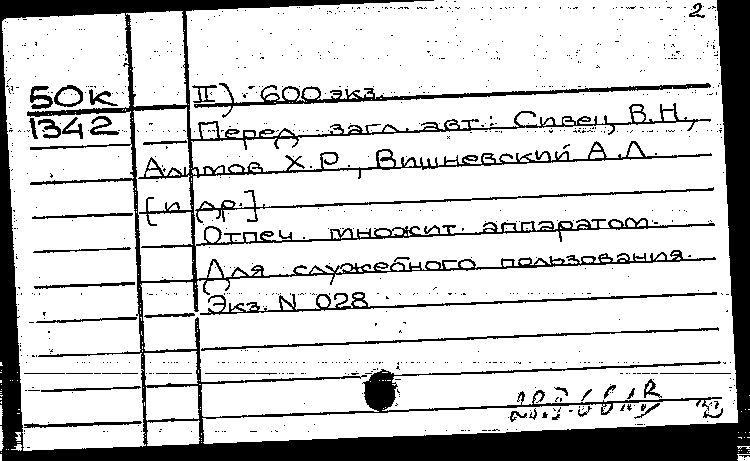 2
50к
1342
II). 600 экз.
Перед загл. авт.: Сивец, В.Н.,
Алимов Х.Р., Вишневский А.Л.
[и др.].
Отпеч. множит. аппаратом.
Для служебного пользования.
Экз. N 028